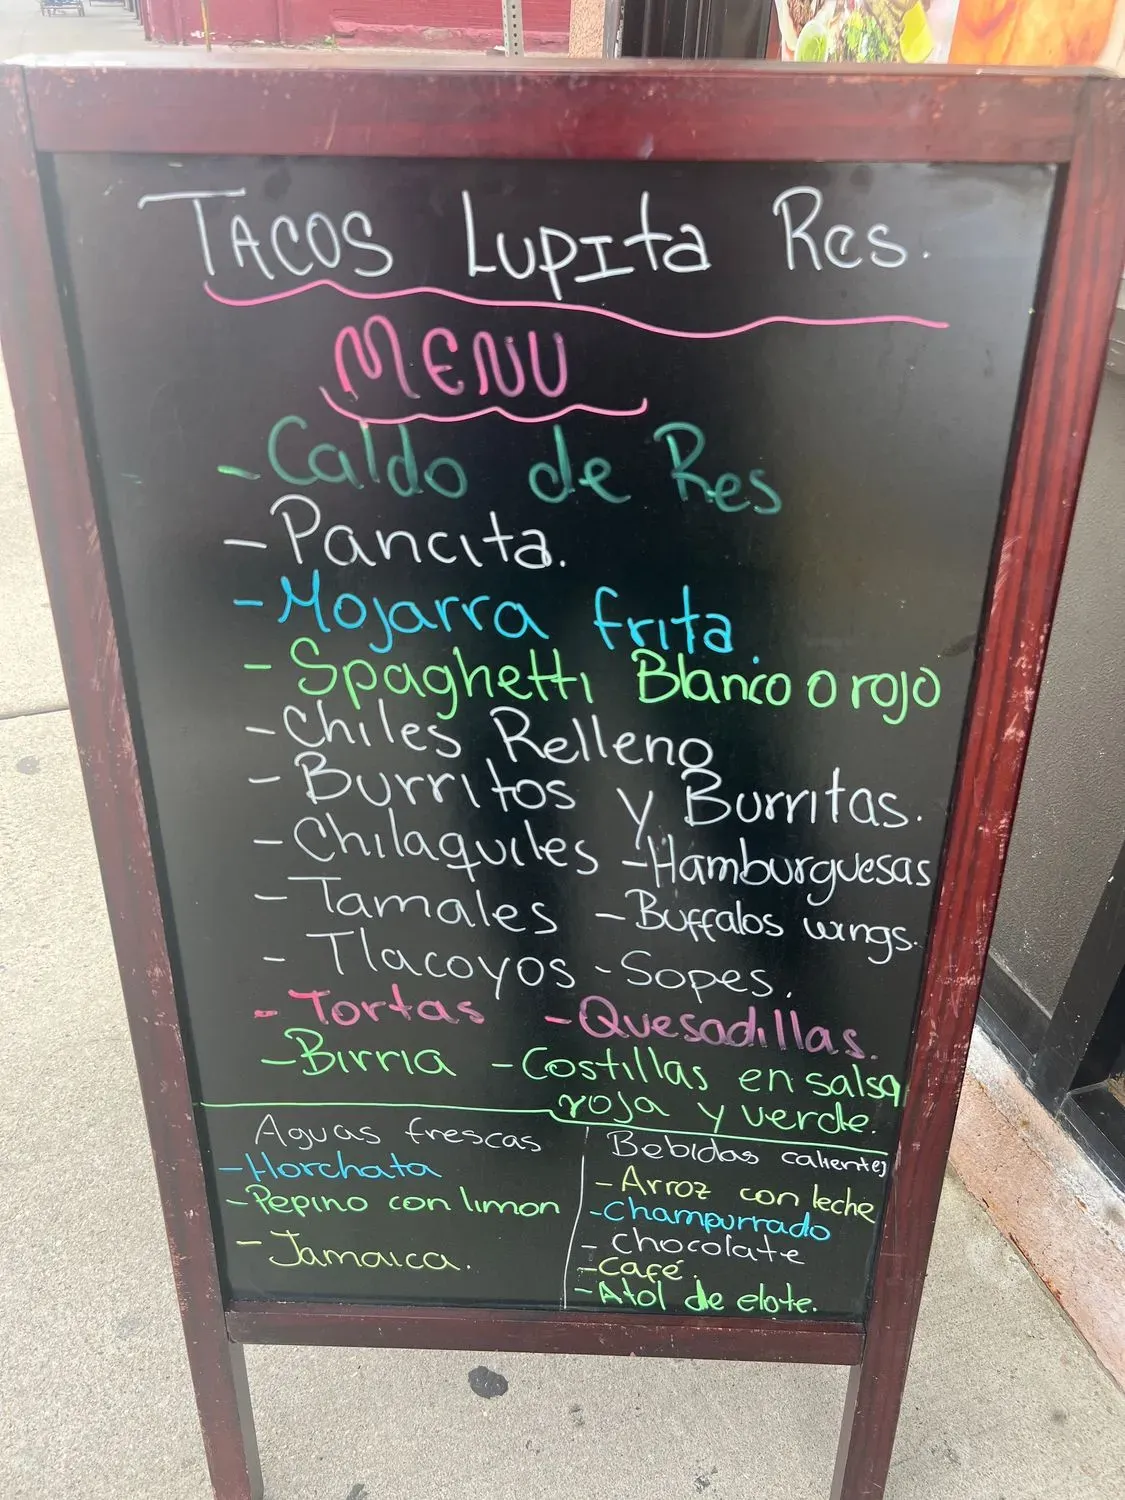 TACOS LUPITA Res.
MENU
- Caldo de Res
- Pancita.
- Mojarra frita.
- Spaghetti Blanco o rojo
- Chiles Relleno
- Burritos y Burritas.
- Chilaquiles - Hamburguesas
- Tamales - Buffalos wings.
- Tlacoyos - Sopes.
- Tortas - Quesadillas.
- Birria - Costillas en salsa
roja y verde.
Aguas frescas
- Horchata
- Pepino con limon
- Jamaica.
Bebidas calientes
- Arroz con leche
- Champurrado
- chocolate
- Café.
- Atol de elote.